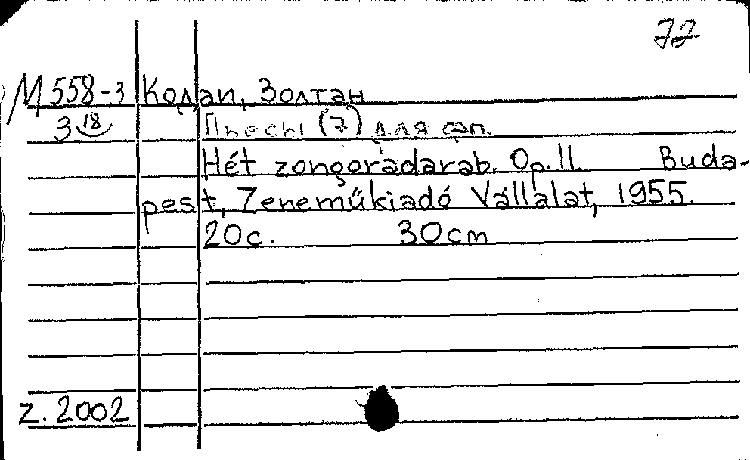 72
М 558-3 Кодаи, Золтан
3 18
Пьесы (7) для фп.
Hét zongoradarab. Op. 11. Buda-
pest, Zeneműkiadó Vállalat, 1955.
20 с. 30 cm
z. 2002